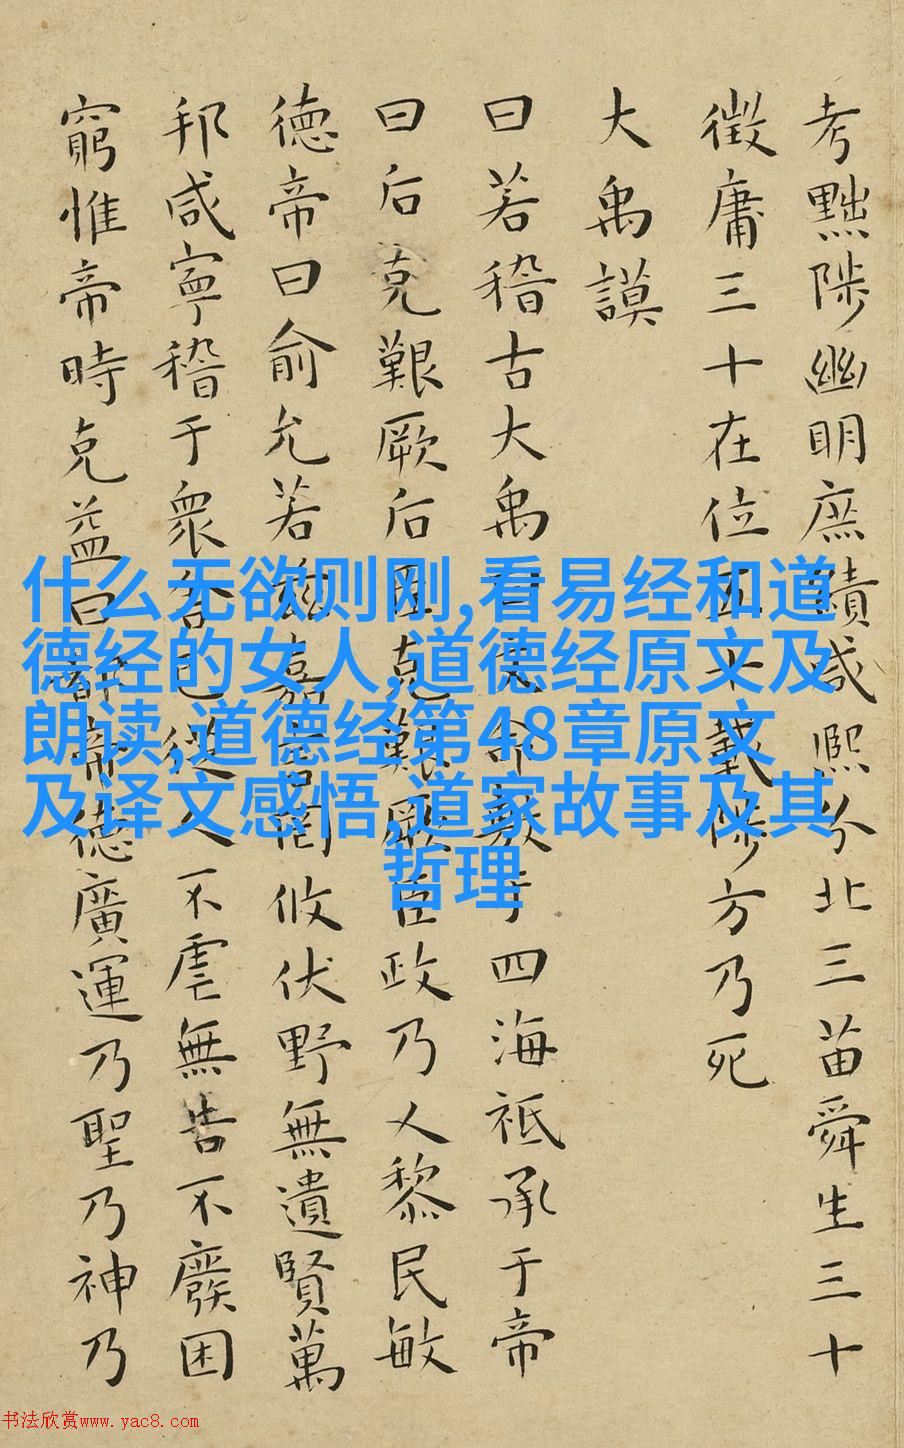 考黜陟幽明庶績咸熙分北三苗舜生三十
徵庸三十在位五十載陟方乃死
大禹謨
曰若稽古大禹曰文命敷于四海祗承于帝
曰后克艱厥后臣克艱厥臣政乃乂黎民敏
德帝曰俞允若茲嘉言罔攸伏野無遺賢萬
邦咸寧稽于衆舍己從人不虐無告不廢困
窮惟帝時克益曰都帝德廣運乃聖乃神乃
什么无欲则刚,看易经和道
德经的女人,道德经原文及
朗读,道德经第48章原文
及译文感悟,道家故事及其
哲理
书法欣赏www.yac8.com